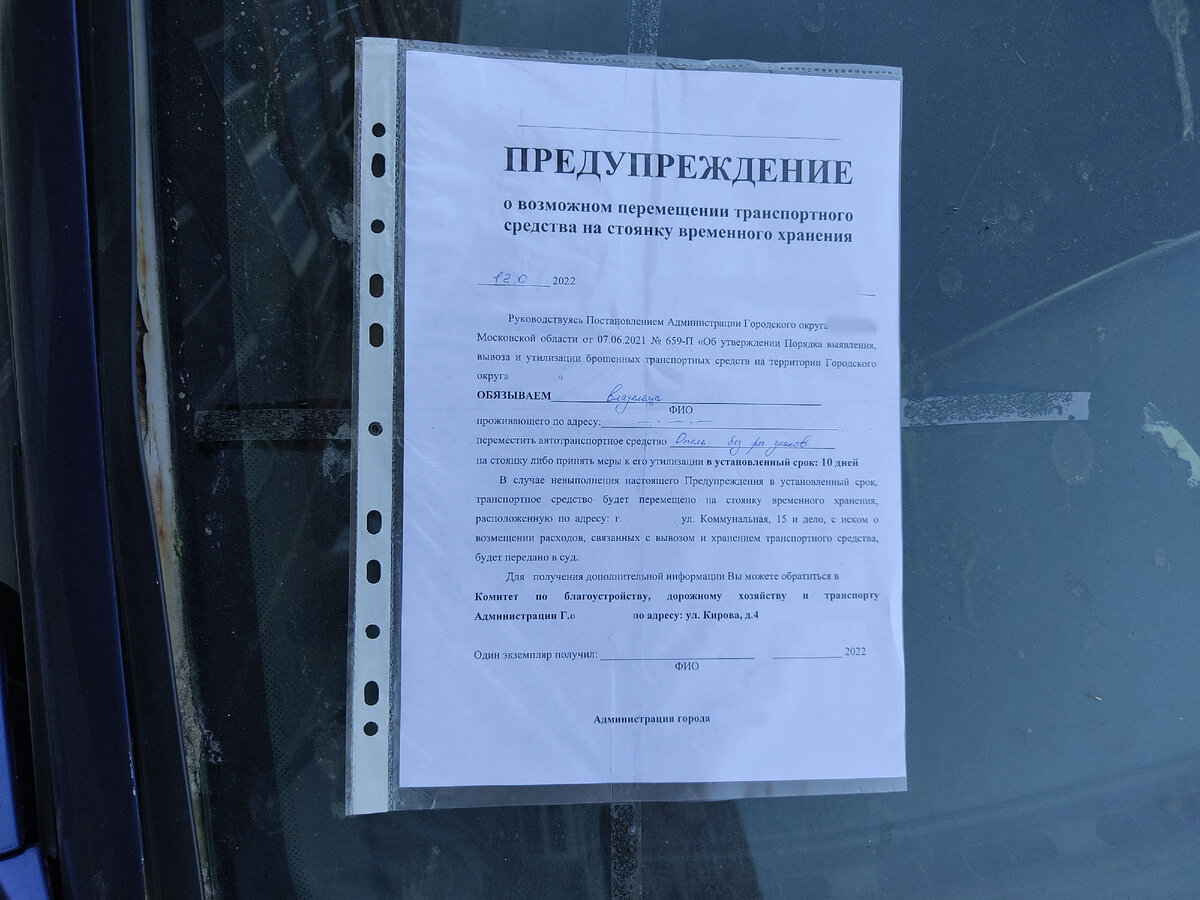 ПРЕДУПРЕЖДЕНИЕ
о возможном перемещении транспортного
средства на стоянку временного хранения
12.0 2022
Руководствуясь Постановлением Администрации Городского округа
Московской области от 07.06.2021 № 659-П «Об утверждении Порядка выявления,
вывоза и утилизации брошенных транспортных средств на территории Городского
округа »
ОБЯЗЫВАЕМ Владельца
ФИО
проживающего по адресу:
переместить автотранспортное средство Опель без рег знаков
на стоянку либо принять меры к его утилизации в установленный срок: 10 дней
В случае невыполнения настоящего Предупреждения в установленный срок,
транспортное средство будет перемещено на стоянку временного хранения,
расположенную по адресу: г. ул. Коммунальная, 15 и дело, с иском о
возмещении расходов, связанных с вывозом и хранением транспортного средства,
будет передано в суд.
Для получения дополнительной информации Вы можете обратиться в
Комитет по благоустройству, дорожному хозяйству и транспорту
Администрации Г.о по адресу: ул. Кирова, д.4
Один экземпляр получил: 2022
ФИО
Администрация города